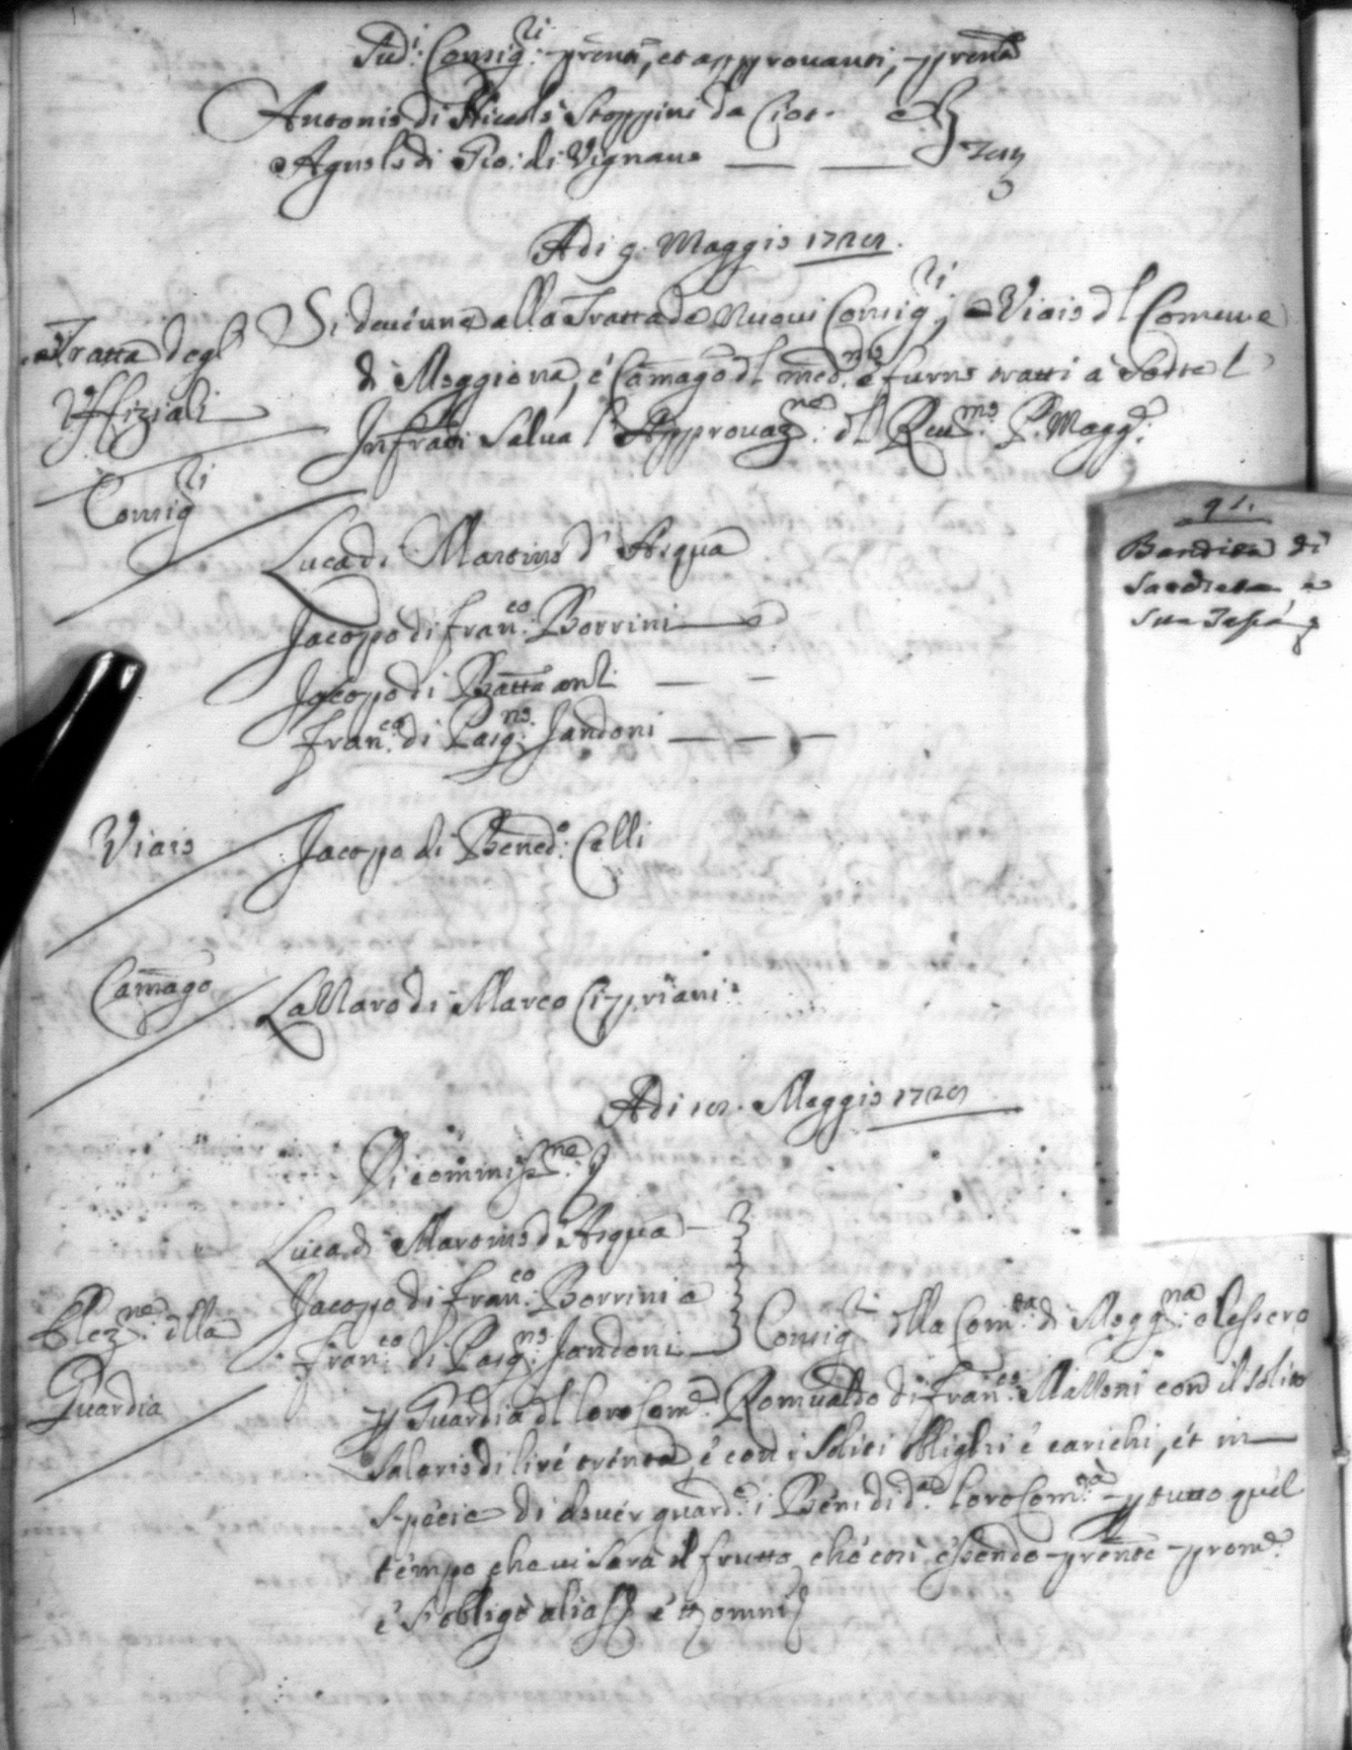 Sud:i Consig:ri prenti, et approvanti, prená
Antonio di Niccolò Stoppini da Ciot.
Agnolo di Gio: di Vignano
Adi 9. Maggio 172
Tratta degl'
Uffiziali
Si devenne alla Tratta de Nuovi Consig:ri, e Viaio dl Comune
di Moggiona, é Camago dl med:mo é furno tratti à Sorte l'
Infratti Salva l'Approvaz:ne dl Reu:mo P. Magg:e
Consig:ri
Luca di Martino d'Acqua
Jacopo di Fran:co Borrini
Jacopo di Batta
Fran:co di Pasq:no Jandoni
91.
Bandita di
Viaio
Jacopo di Bened:o Celli
Camago
Lazzaro di Marco Cipriani
Adi Maggio 172
Di commiss:ne
Elez:ne dlla
Guardia
Luca di Martino d'Acqua
Jacopo di Fran:co Borrini e
Fran:co di Pasq:no Jandoni
Consig:ri dlla Com:tà di Mogg:na elessero
p Guardia dl loro Com:e Romualdo di Fran:co Mattoni con il solito
salario di lire trenta, é con i soliti oblighi é carichi, ét in
specie di dover guard:e i Beni di d:a loro Com:tà p tutto quel
tempo che vi sarà il frutto, che così essendo prente prom:e
é si obligò alias é omni